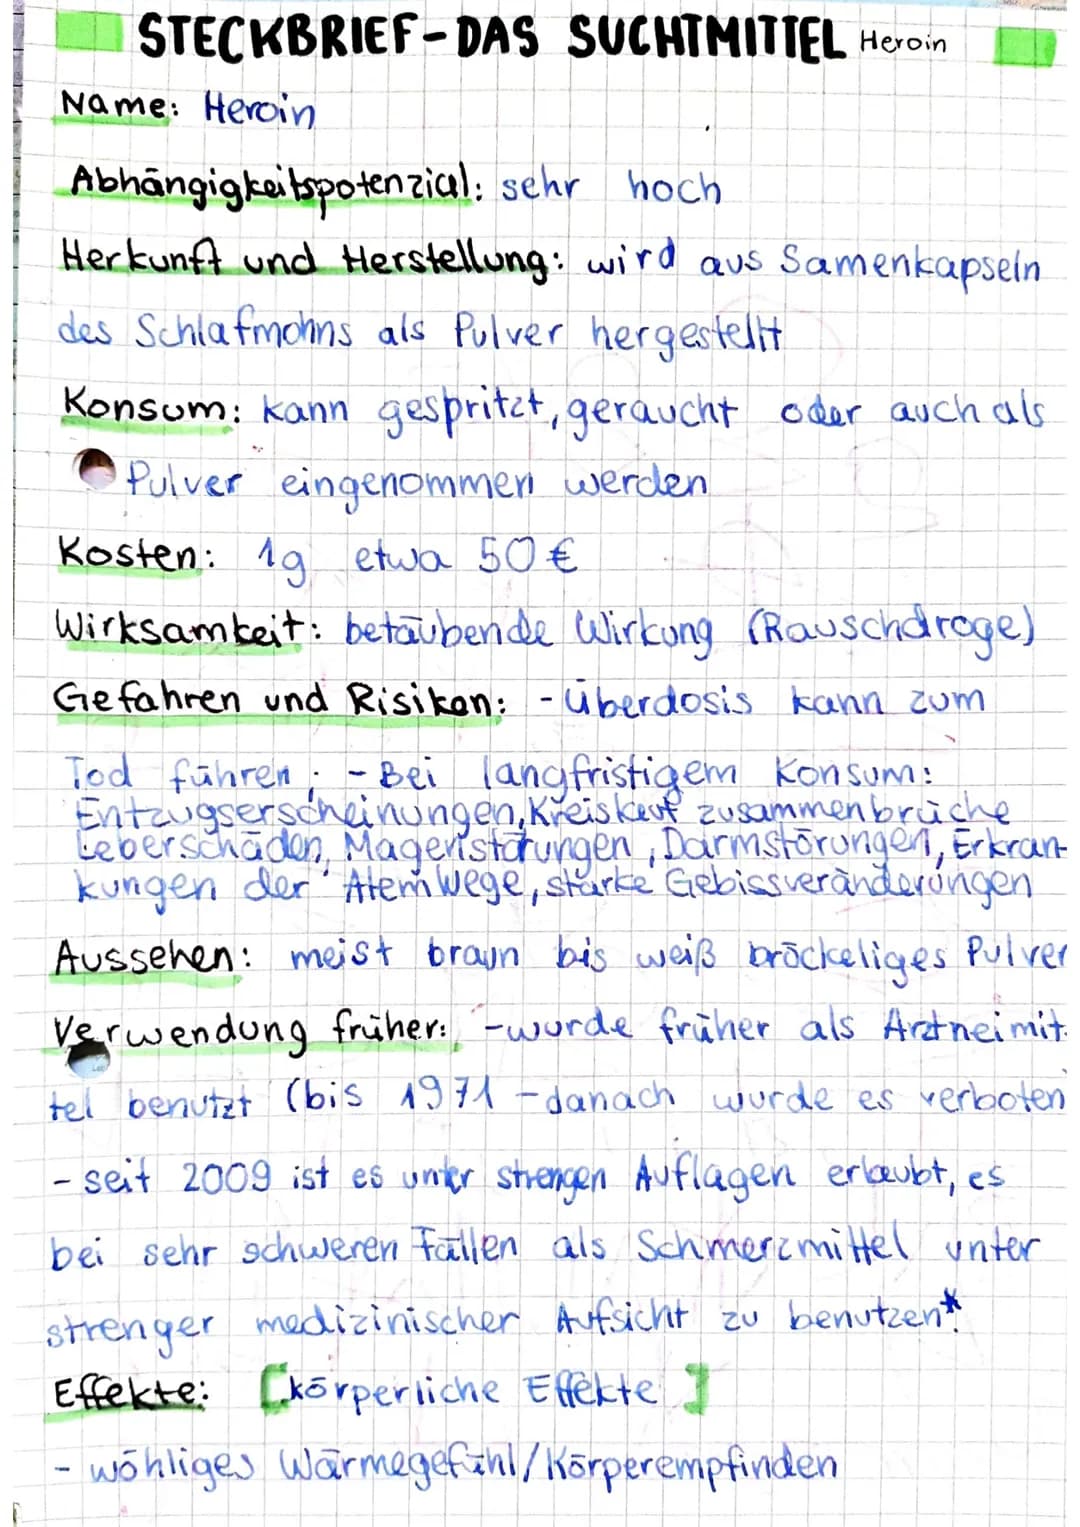 STECKBRIEF-DAS SUCHTMITTEL Heroin
Name: Heroin
Abhängigkeitspotenzial: sehr hoch
Herkunft und Herstellung: wird aus Samenkapseln
des Schlafmohns als Pulver hergestellt
Konsum: kann gespritzt, geraucht oder auch als
Pulver eingenommen werden
Kosten: 1g etwa 50 €
Wirksamkeit: betäubende Wirkung (Rauschdroge)
Gefahren und Risiken: - Überdosis kann zum
Tod führen; - Bei langfristigem Konsum:
Entzugserscheinungen, Kreislauf zusammenbrüche
Leberschäden, Magenstörungen, Darmstörungen, Erkran-
kungen der Atemwege, starke Gebissveränderungen
Aussehen: meist braun bis weiß bröckeliges Pulver
Verwendung früher: - wurde früher als Arztneimit-
tel benutzt (bis 1971 - danach wurde es verboten
- seit 2009 ist es unter strengen Auflagen erlaubt, es
bei sehr schweren Fällen als Schmerzmittel unter
strenger medizinischer Aufsicht zu benutzen*.
Effekte: [körperliche Effekte]
- wohliges Wärmegefühl/Körperempfinden